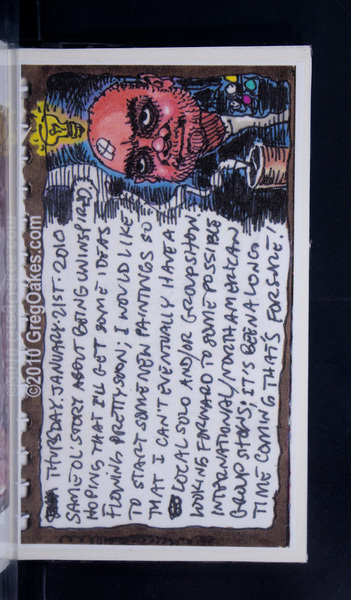 THURSDAY, JANUARY 21ST. 2010
SAME OL' STORY ABOUT BEING UNINSPIRED;
HOPING THAT I'LL GET SOME IDEAS
FLOWING PRETTY SOON; I WOULD LIKE
TO START SOME NEW PAINTINGS SO
THAT I CAN'T EVENTUALLY HAVE A
LOCAL SOLO AND/OR GROUP SHOW
LOOKING FORWARD TO SOME POSSIBLE
INTERNATIONAL/NORTH AMERICAN
GROUP SHOWS; IT'S BEEN A LONG
TIME COMING THAT'S FOR SURE!
©2010 GregOakes.com